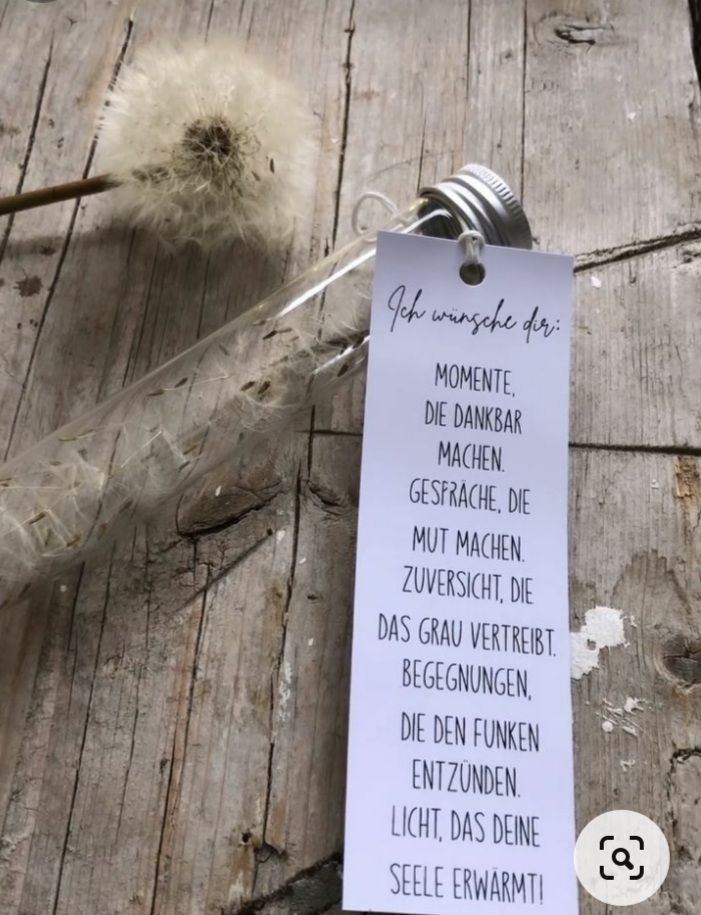 Ich wünsche dir:
MOMENTE,
DIE DANKBAR
MACHEN.
GESPRÄCHE, DIE
MUT MACHEN.
ZUVERSICHT, DIE
DAS GRAU VERTREIBT.
BEGEGNUNGEN,
DIE DEN FUNKEN
ENTZÜNDEN.
LICHT, DAS DEINE
SEELE ERWÄRMT!